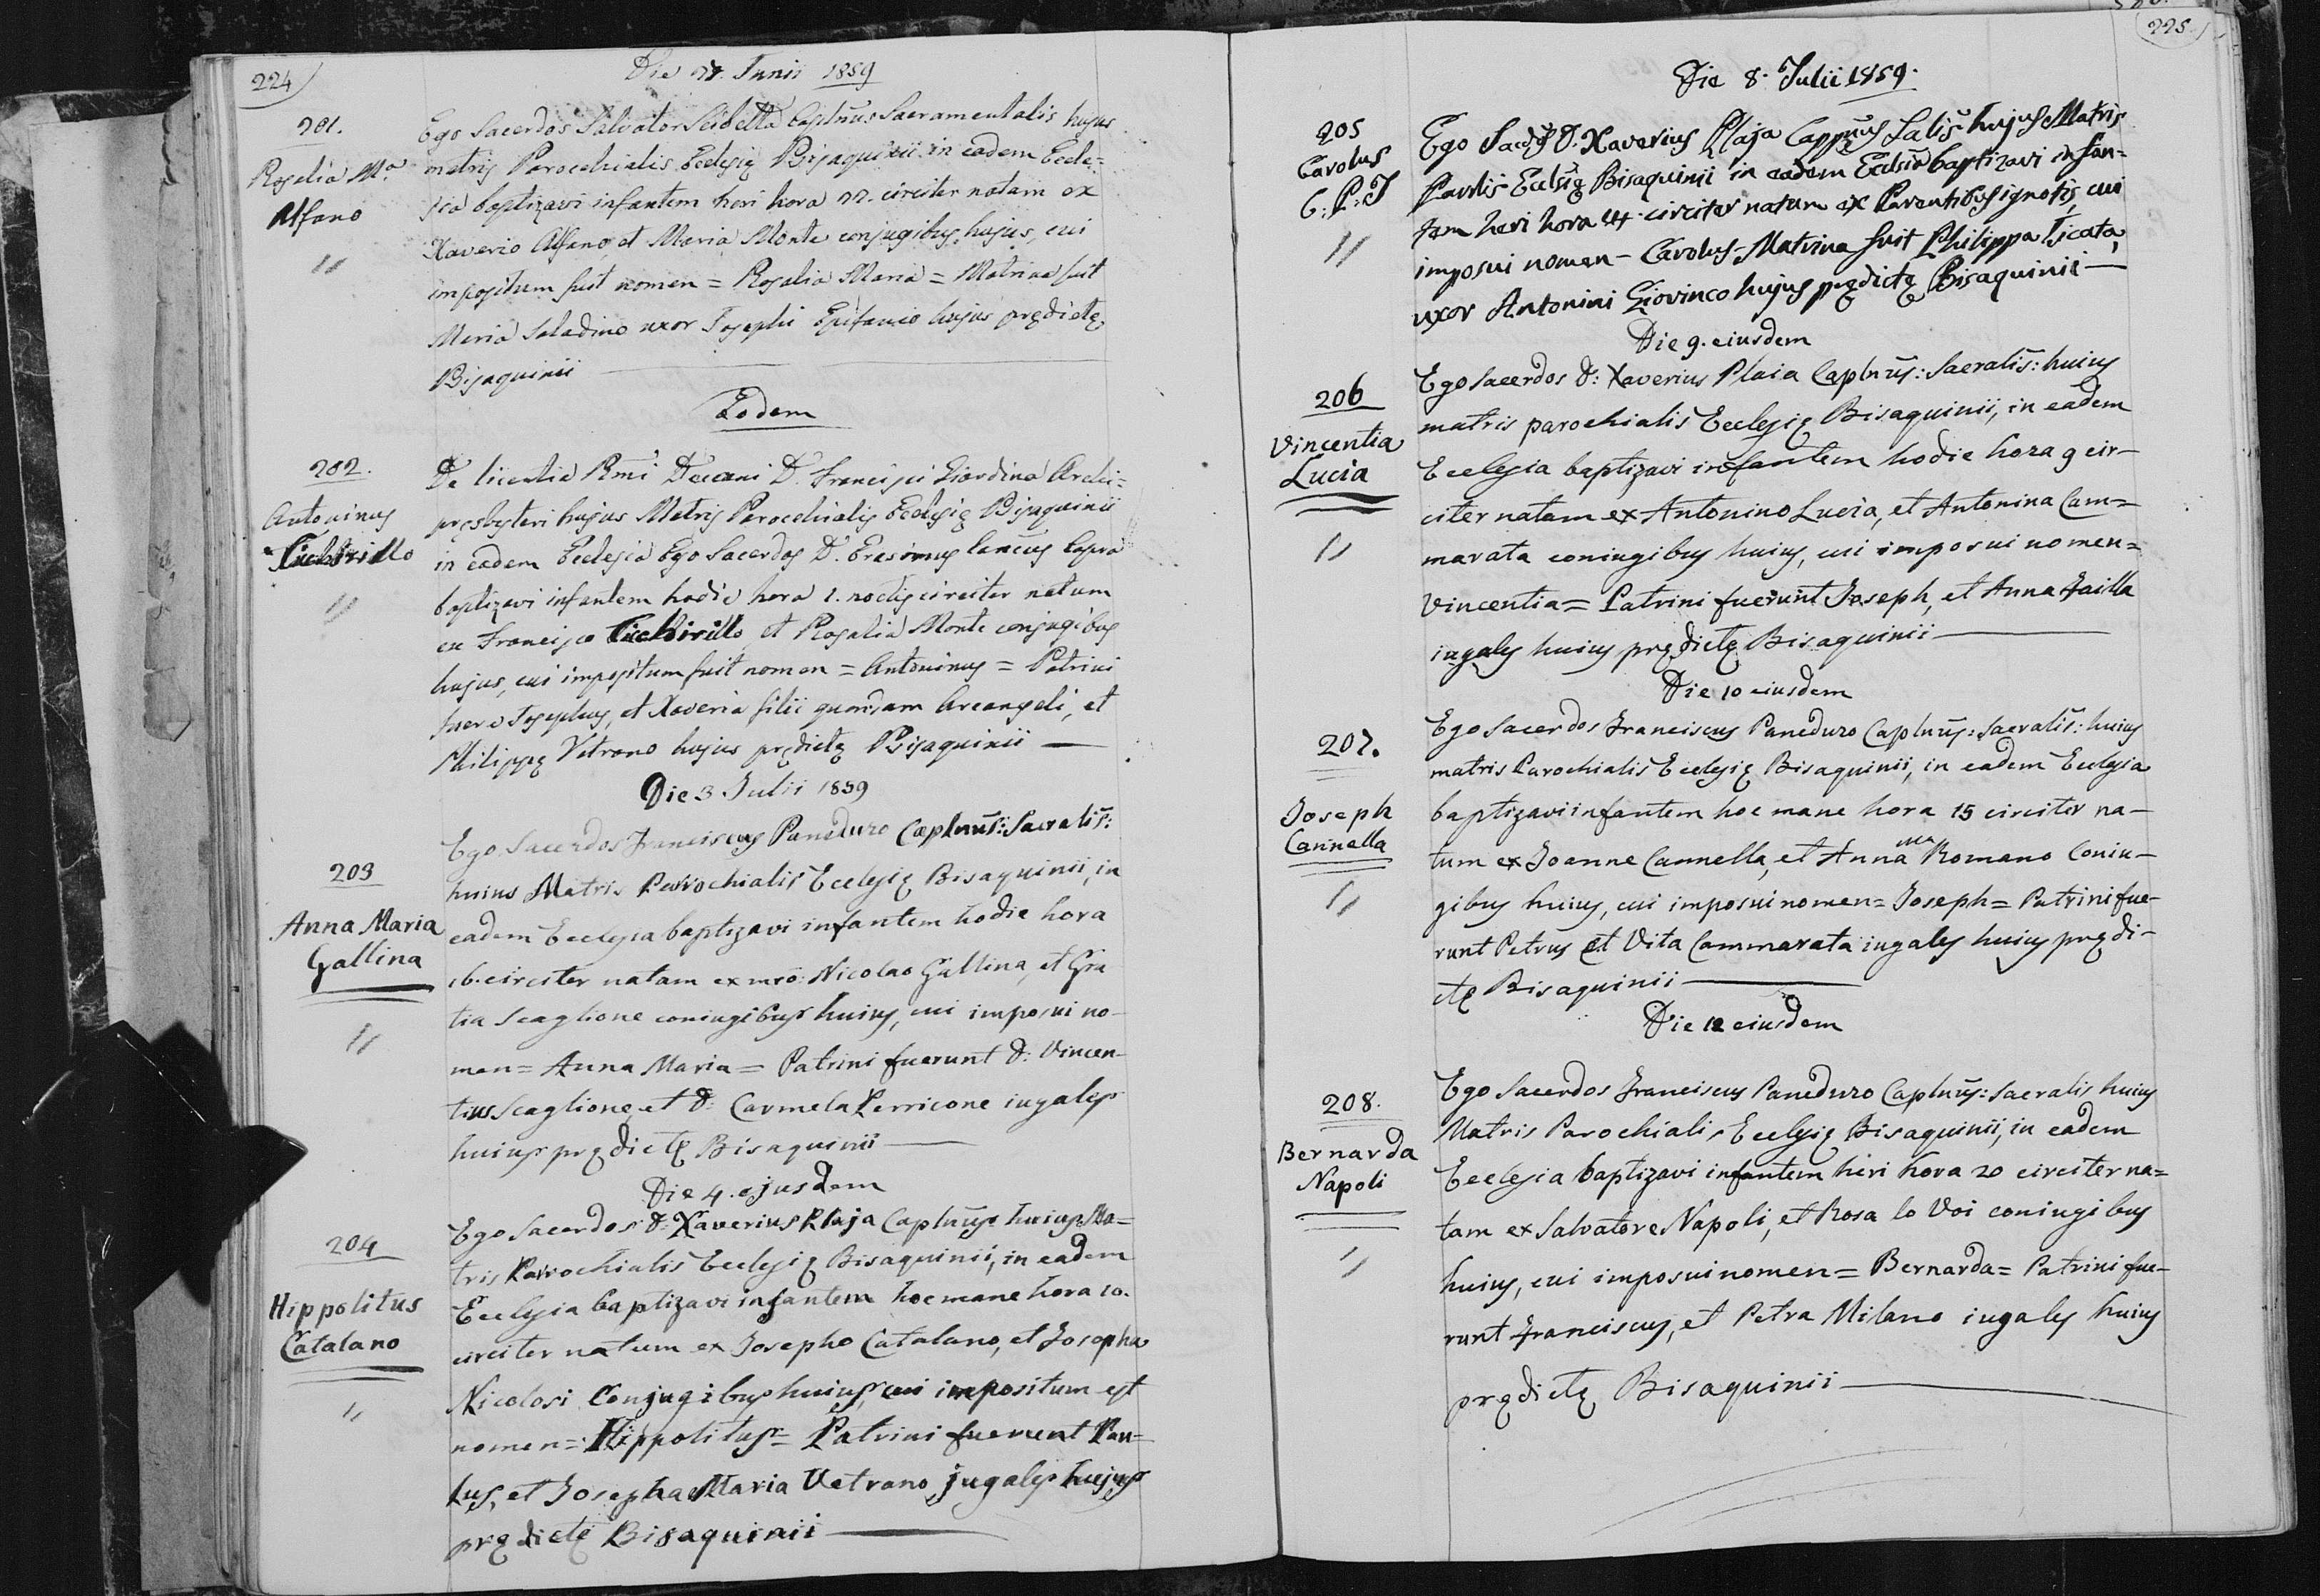 224
Die 27. Junii 1859
201.
Rosalia Ma.
Alfano
Ego Sacerdos Salvator Scibetta Caplnus Sacramentalis hujus
matris Parocchialis Ecclesię Bisaquinii in eadem Eccle=
sia baptizavi infantem heri hora 22. circiter natam ex
Xaverio Alfano, et Maria Monte conjugibus hujus, cui
impositum fuit nomen = Rosalia Maria = Matrina fuit
Maria Saladino uxor Josephi Epifanio hujus prędictę
Bisaquinii
Eodem
202.
Antoninus
Cuchirillo
De licentia Rmi Decani D. Francisci Giardina Archi=
pręsbyteri hujus Matris Parocchialis Ecclesię Bisaquinii
in eadem Ecclesia Ego Sacerdos D. Erasimus Cancus Capra
baptizavi infantem hodie hora 1. noctis circiter natum
ex Francisco Cuchirillo, et Rosalia Monte conjugibus
hujus, cui impositum fuit nomen = Antoninus = Patrini
fuere Josephus, et Xaveria filii quondam Arcangeli, et
Philippę Vetrano hujus prędictę Bisaquinii
Die 3 Julii 1859
203
Anna Maria
Gallina
Ego Sacerdos Franciscus Paneduro Caplnus: Sacralis:
huius Matris Parrochialis Ecclesię Bisaquinii, in
eadem Ecclesia baptizavi infantem hodie hora
16. circiter natam ex mro: Nicolao Gallina, et Gra
tia Scaglione coniugibus huius, cui imposui no-
men = Anna Maria = Patrini fuerunt D: Vincen-
tius Scaglione, et D: Carmela Perricone iugales
huius prędictę Bisaquinii
Die 4. ejusdem
204
Hippolitus
Catalano
Ego Sacerdos D: Xaverius Plaja Caplnus huius Ma=
tris Parrochialis Ecclesię Bisaquinii, in eadem
Ecclesia baptizavi infantem hoc mane hora 10.
circiter natum ex Josepho Catalano, et Josepha
Nicolosi Conjugibus huius, cui impositum est
nomen = Hippolitus = Patrini fuerunt Pau-
lus, et Josepha Maria Vetrano jugales hujus
prędictę Bisaquinii
225
Die 8. Julii 1859.
205
Carolus
C: P: J
Ego Sacds D. Xaverius Plaja Cappnus Salis hujus Matris
Parolis Eclsię Bisaquinii in eadem Eclsia baptizavi infan=
tem heri hora 24 circiter natum ex Parentibus ignotis, cui
imposui nomen - Carolus - Matrina fuit Philippa Licata,
uxor Antonini Giovinco hujus prędictę Bisaquinii
Die 9. eiusdem
206
Vincentia
Lucia
Ego Sacerdos D: Xaverius Plaia Caplnus: Sacralis: huius
matris parochialis Ecclesię Bisaquinii, in eadem
Ecclesia baptizavi infantem hodie hora 9 cir-
citer natam ex Antonino Lucia, et Antonina Cam=
marata coniugibus huius, cui imposui nomen =
Vincentia = Patrini fuerunt Joseph, et Anna Jailla
iugales huius prędictę Bisaquinii
Die 10 eiusdem
207.
Joseph
Cannella
Ego Sacerdos Franciscus Paneduro Caplnus: Sacralis: huius
matris Parochialis Ecclesię Bisaquinii, in eadem Ecclesia
baptizavi infantem hoc mane hora 15 circiter na-
tum ex Joanne Cannella, et Anna Ma Romano coniu-
gibus huius, cui imposui nomen = Joseph = Patrini fue-
runt Petrus et Vita Cammarata iugales huius prędi-
ctę Bisaquinii
Die 12 eiusdem
208.
Bernarda
Napoli
Ego Sacerdos Franciscus Paneduro Caplnus: Sacralis huius
Matris Parochialis Ecclesię Bisaquinii, in eadem
Ecclesia baptizavi infantem heri hora 20 circiter na=
tam ex Salvatore Napoli, et Rosa lo Voi coniugibus
huius, cui imposui nomen = Bernarda = Patrini fue-
runt Franciscus, et Petra Milano iugales huius
prędictę Bisaquinii